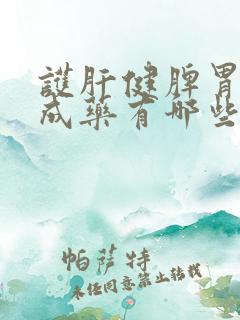 護肝健脾胃
成藥有哪些
帕薩特
未经同意禁止转载